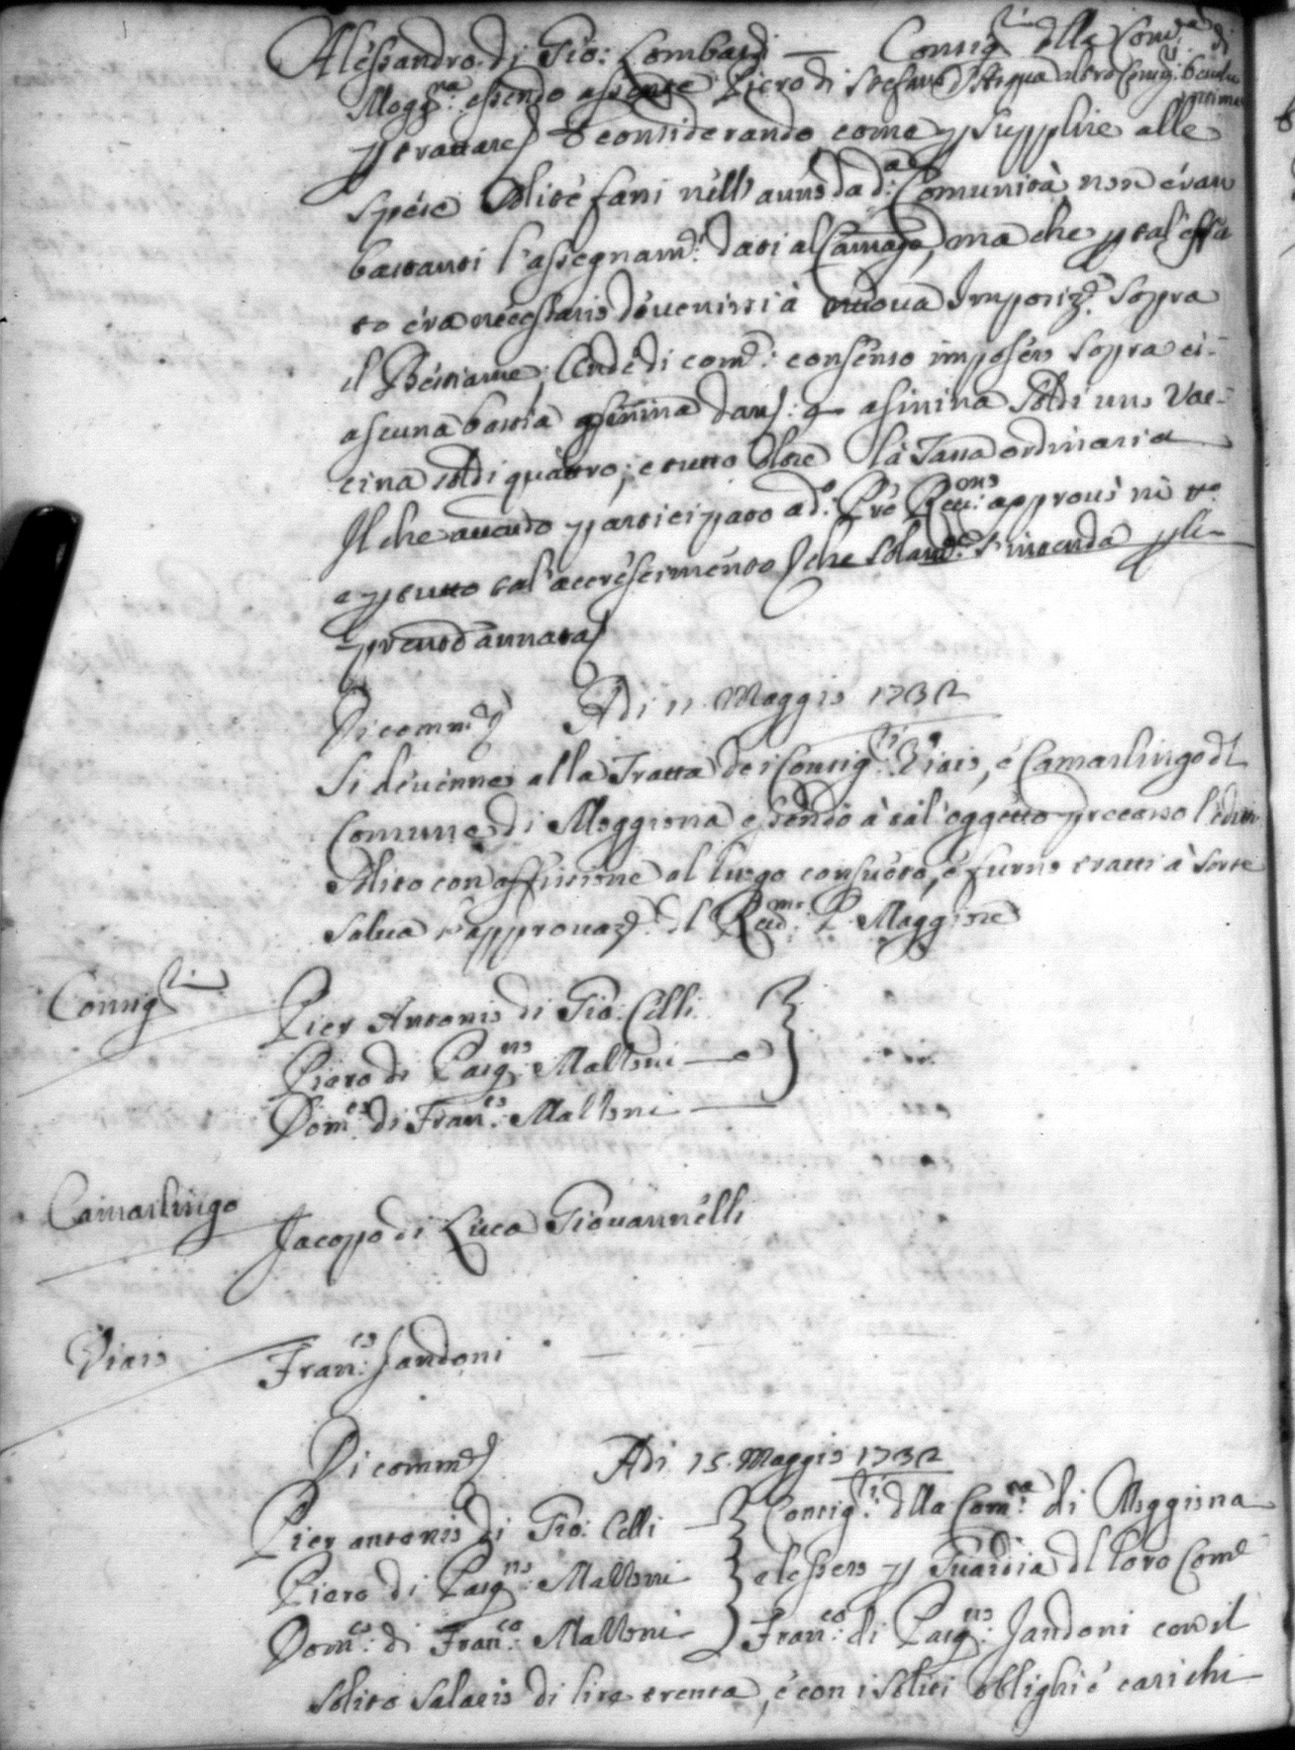 Alessandro di Gio: Lombardi — Consig:ri della Com:tà di
Mogg:na essendo assente Piero di Stefano d'Acqua altro Consig:
p trattare, e considerando come p supplire alle
spese solite farsi nell'anno da d:a Comunità non eran
bastanti l'assegnam:ti dati al Camar:go, ma che p tal'effet
to era necessario devenirsi à nuova Imposiz:e sopra
il Bestiame; Onde di com:e consenso imposero sopra ci-
ascuna bestia asinina soldi uno Vac-
cina soldi quattro; e tutto oltre la Tassa ordinaria
Il che avendo participato a d:o P're Rev:mo approvò in t:o
e p tutto tal'accrescimento, che solam:te s'intenda p la
p'rente annata
Di comm:e Adi 11 Maggio 1732
Si devenne alla Tratta dei Consig:ri Viaio, e Camarlingo dl
Comune di Moggiona essendo à tal'oggetto precorso l'edit
solito con affissione al luogo consueto, e furno tratti à sorte
salva l'approvaz:e dl Rev:mo P. Maggiore
Consig:ri
Pier Antonio di Gio: Celli
Piero di Pasq:no Malloni
Dom:co di Fran:co Malloni
Camarlingo
Jacopo di Luca Giovannelli
Viaio
Fran:co Jandoni
Di comm:e Adi 15 Maggio 1732
Pier antonio di Gio: Celli Consig:ri dlla Com:tà di Moggiona
Piero di Pasq:no Malloni elessero p Guardia dl loro Com:e
Dom:co di Fran:co Malloni Fran:co di Pasq:no Jandoni con il
solito salario di lire trenta, e con i soliti oblighi e carichi